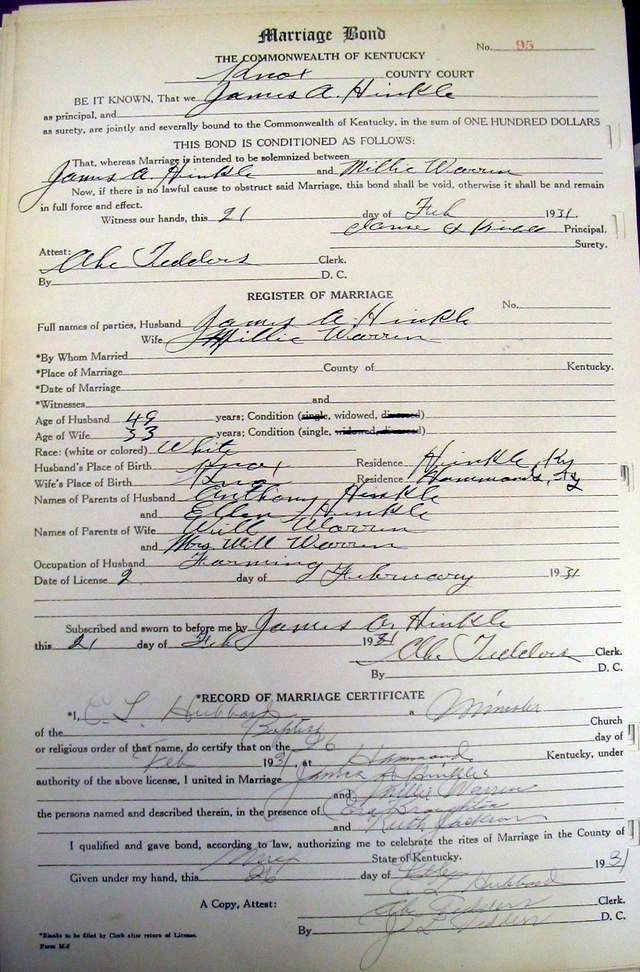 Marriage Bond
No. 95
THE COMMONWEALTH OF KENTUCKY
Knox COUNTY COURT
BE IT KNOWN, That we James A. Hinkle
as principal, and
as surety, are jointly and severally bound to the Commonwealth of Kentucky, in the sum of ONE HUNDRED DOLLARS
THIS BOND IS CONDITIONED AS FOLLOWS:
That, whereas Marriage is intended to be solemnized between
James A. Hinkle and Millie Warren
Now, if there is no lawful cause to obstruct said Marriage, this bond shall be void, otherwise it shall be and remain
in full force and effect.
Witness our hands, this 21 day of Feb 1931.
Principal.
Surety.
Attest:
Abe Tedders Clerk.
By D. C.
REGISTER OF MARRIAGE
No.
Full names of parties, Husband James A. Hinkle
Wife Millie Warren
*By Whom Married
*Place of Marriage County of Kentucky.
*Date of Marriage
*Witnesses and
Age of Husband 49 years; Condition (single, widowed, divorced)
Age of Wife 33 years; Condition (single, widowed, divorced)
Race: (white or colored) White
Husband's Place of Birth Knox Residence Hinkle, Ky
Wife's Place of Birth Knox Residence Hammond, Ky
Names of Parents of Husband Anthony Hinkle
and Ellen Hinkle
Names of Parents of Wife Will Warren
and Mrs. Will Warren
Occupation of Husband Farming
Date of License 2 day of February 1931
Subscribed and sworn to before me by James A. Hinkle
this 21 day of Feb 1931
Abe Tedders Clerk.
By D. C.
*RECORD OF MARRIAGE CERTIFICATE
*I, C. L. Hubbard a Minister
of the Baptist Church
or religious order of that name, do certify that on the 26 day of
Feb 1931, at Hammond Kentucky, under
authority of the above license, I united in Marriage James A Hinkle
and Millie Warren
the persons named and described therein, in the presence of
and Ruth Jackson
I qualified and gave bond, according to law, authorizing me to celebrate the rites of Marriage in the County of
State of Kentucky.
Given under my hand, this 26 day of Feb 1931
C L Hubbard
A Copy, Attest: Abe Tedders Clerk.
By J L Tedders D. C.
*Blanks to be filled by Clerk after return of License.
Form M-F